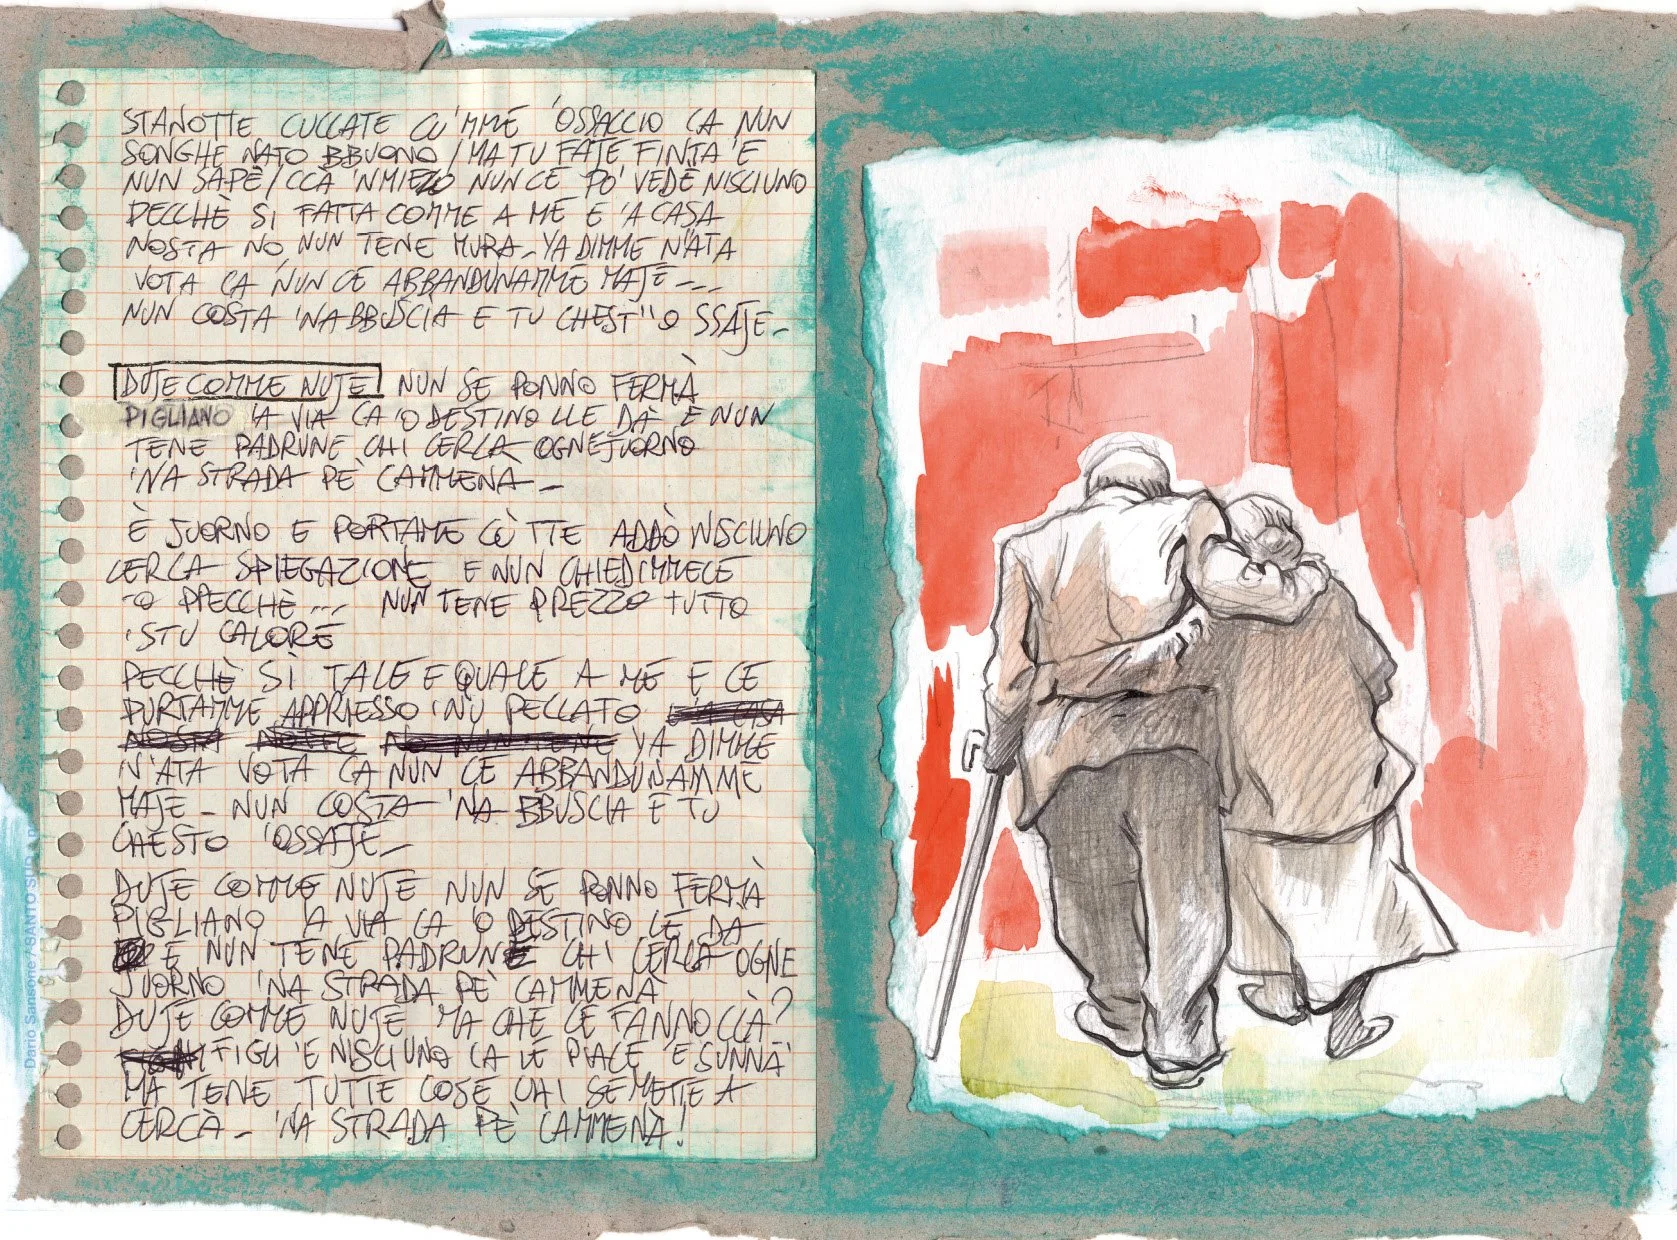 STANOTTE CUCCATE CU'MME 'OSSACCIO CA NUN
SONGHE NATO BBUONO / MA TU FAJE FINTA 'E
NUN SAPÈ / CCÀ 'NMIEZO NUN CE PO' VEDÈ NISCIUNO
PECCHÈ SI FATTA COMME A ME E 'A CASA
NOSTA NO, NUN TENE MURA - YA DIMME N'ATA
VOTA CA NUN CE ABBANDUNAMME MAJE ---
NUN COSTA 'NA BBUSCIA E TU CHEST''O SSAJE -
DUJE COMME NUJE NUN SE PONNO FERMÀ
PIGLIANO 'A VIA CA 'O DESTINO LLE DÀ E NUN
TENE PADRUNE CHI CERCA OGNE JUORNO
'NA STRADA PE' CAMMENÀ -
È JUORNO E PORTAME CÙ TTE ADDÒ NISCIUNO
CERCA SPIEGAZIONE E NUN CHIEDIMMECE
'O PPECCHÈ --- NUN TENE PREZZO TUTTO
'STU CALORE
PECCHÈ SÌ TALE E QUALE A ME E CE
PURTAMME APPRIESSO 'NU PECCATO E 'A CASA
NOSTA NOTTE NO NUN TENE YA DIMME
N'ATA VOTA CA NUN CE ABBANDUNAMME
MAJE - NUN COSTA 'NA BBUSCIA E TU
CHESTO 'OSSAJE -
DUJE COMME NUJE NUN SE PONNO FERMÀ
PIGLIANO 'A VIA CA 'O DESTINO LE DÀ
E NUN TENE PADRUNE CHI CERCA OGNE
JUORNO 'NA STRADA PE' CAMMENÀ
DUJE COMME NUJE MA CHE CE FANNO CCÀ?
FIGLI 'E NISCIUNO CA LE PIACE 'E SUNNÀ
MA TENE TUTTE COSE CHI SE METTE A
CERCÀ - 'NA STRADA PE' CAMMENÀ!
Dario Sansone / SANTO SUD